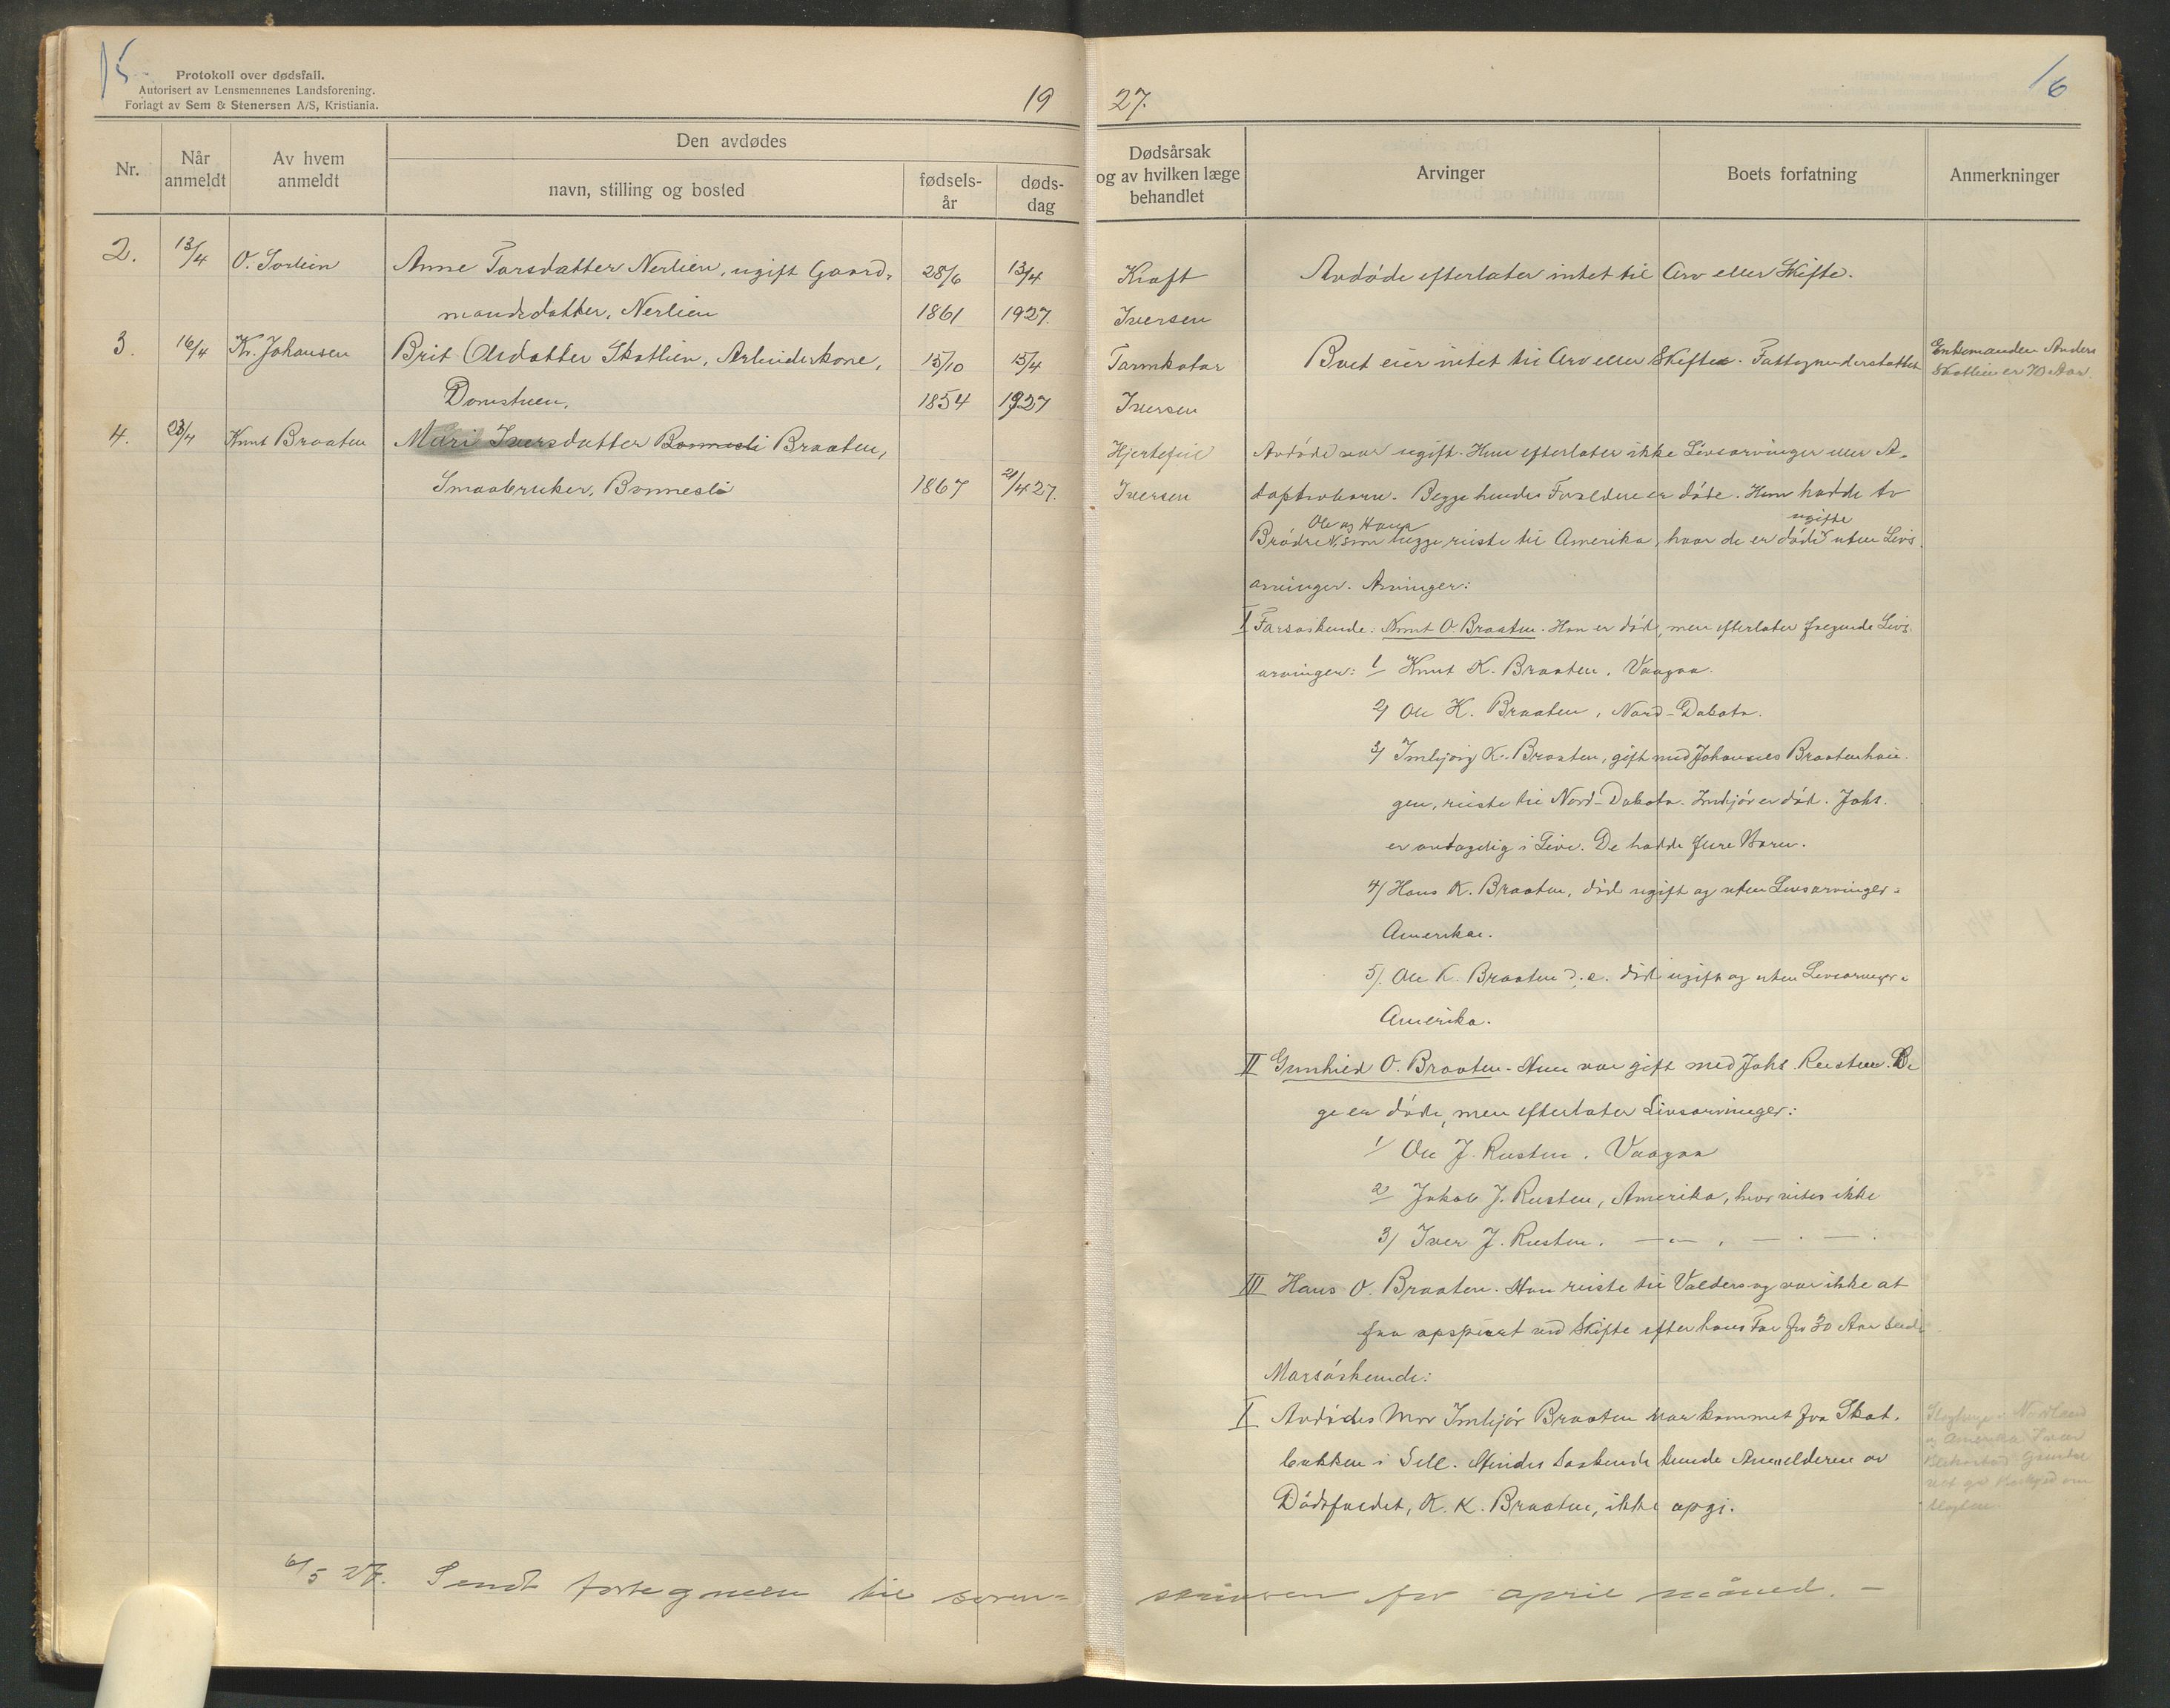 15.
Protokoll over dødsfall.
Autorisert av Lensmennenes Landsforening.
Forlagt av Sem & Stenersen A/S, Kristiania.
19 27.
16
Nr.
Når anmeldt
Av hvem anmeldt
Den avdødes
navn, stilling og bosted
fødsels-år
døds-dag
Dødsårsak og av hvilken læge behandlet
Arvinger
Boets forfatning
Anmerkninger
2. 13/4 O. Sorlien Anne Torsdatter Nerlien, ugift Gaard- 28/6 13/4 Kraft Avdöde efterlater intet til Arv eller Skifte.
mandsdatter, Nerlien 1861 1927. Iversen
3. 16/4 Kr. Johansen Brit Olsdatter Skotlien, Arbeiderkone, 15/10 15/4 Tarmkatar Boet eier intet til Arv eller Skifte. Fattigunderstöttet Enkemanden Anders
Skotlien er 70 Aar.
1854 1927 Iversen
4. 23/4 Knut Braaten Mari Iversdatter Bonnesli Braaten, Hjertefeil Avdöde var ugift. Hun efterlater ikke Livsarvinger eller A-
Smaabruker, Bonnesli 1867 21/4 27. Iversen doptivbarn. Begge hendes Foreldre er döde. Hun hadde to
Ole og Hans ugifte
Brödre, som begge reiste til Amerika, hvor de er döde uten Livs-
arvinger. Arvinger:
I Farsöskende: Knut O. Braaten. Han er död, men efterlater fölgende Livs-
arvinger: 1/ Knut K. Braaten, Vaagaa.
2/ Ole K. Braaten, Nord-Dakota.
3/ Imbjörg K. Braaten, gift med Johannes Braatenhau-
gen, reiste til Nord-Dakota. Imbjör er död. Johs.
er antagelig i Live. De hadde flere Barn.
4/ Hans K. Braaten, död ugift og uten Livsarvinger i
Amerika.
5/ Ole K. Braaten d.e. död ugift og uten Livsarvinger i
Amerika.
II Gunhild O. Braaten. Hun var gift med Johs. Rusten. Be
ge er döde, men efterlater Livsarvinger:
1/ Ole J. Rusten, Vaagaa
2/ Jakob J. Rusten, Amerika, hvor vites ikke
3/ Iver J. Rusten, — " — , — . — .
III Hans O. Braaten. Han reiste til Valders og var ikke at
faa opspurt ved Skifte efter hans Far for 30 Aar siden
Morsöskende:
I Avdödes Mor Imbjör Braaten var kommet fra Skot-
bakken i Sell. Hendes Söskende kunde Anmelderen av
Dödsfaldet, K. K. Braaten, ikke opgi.
og Amerika Iver
6/5 27. Sendt fortegnelse til soren- skriveren for april måned. —